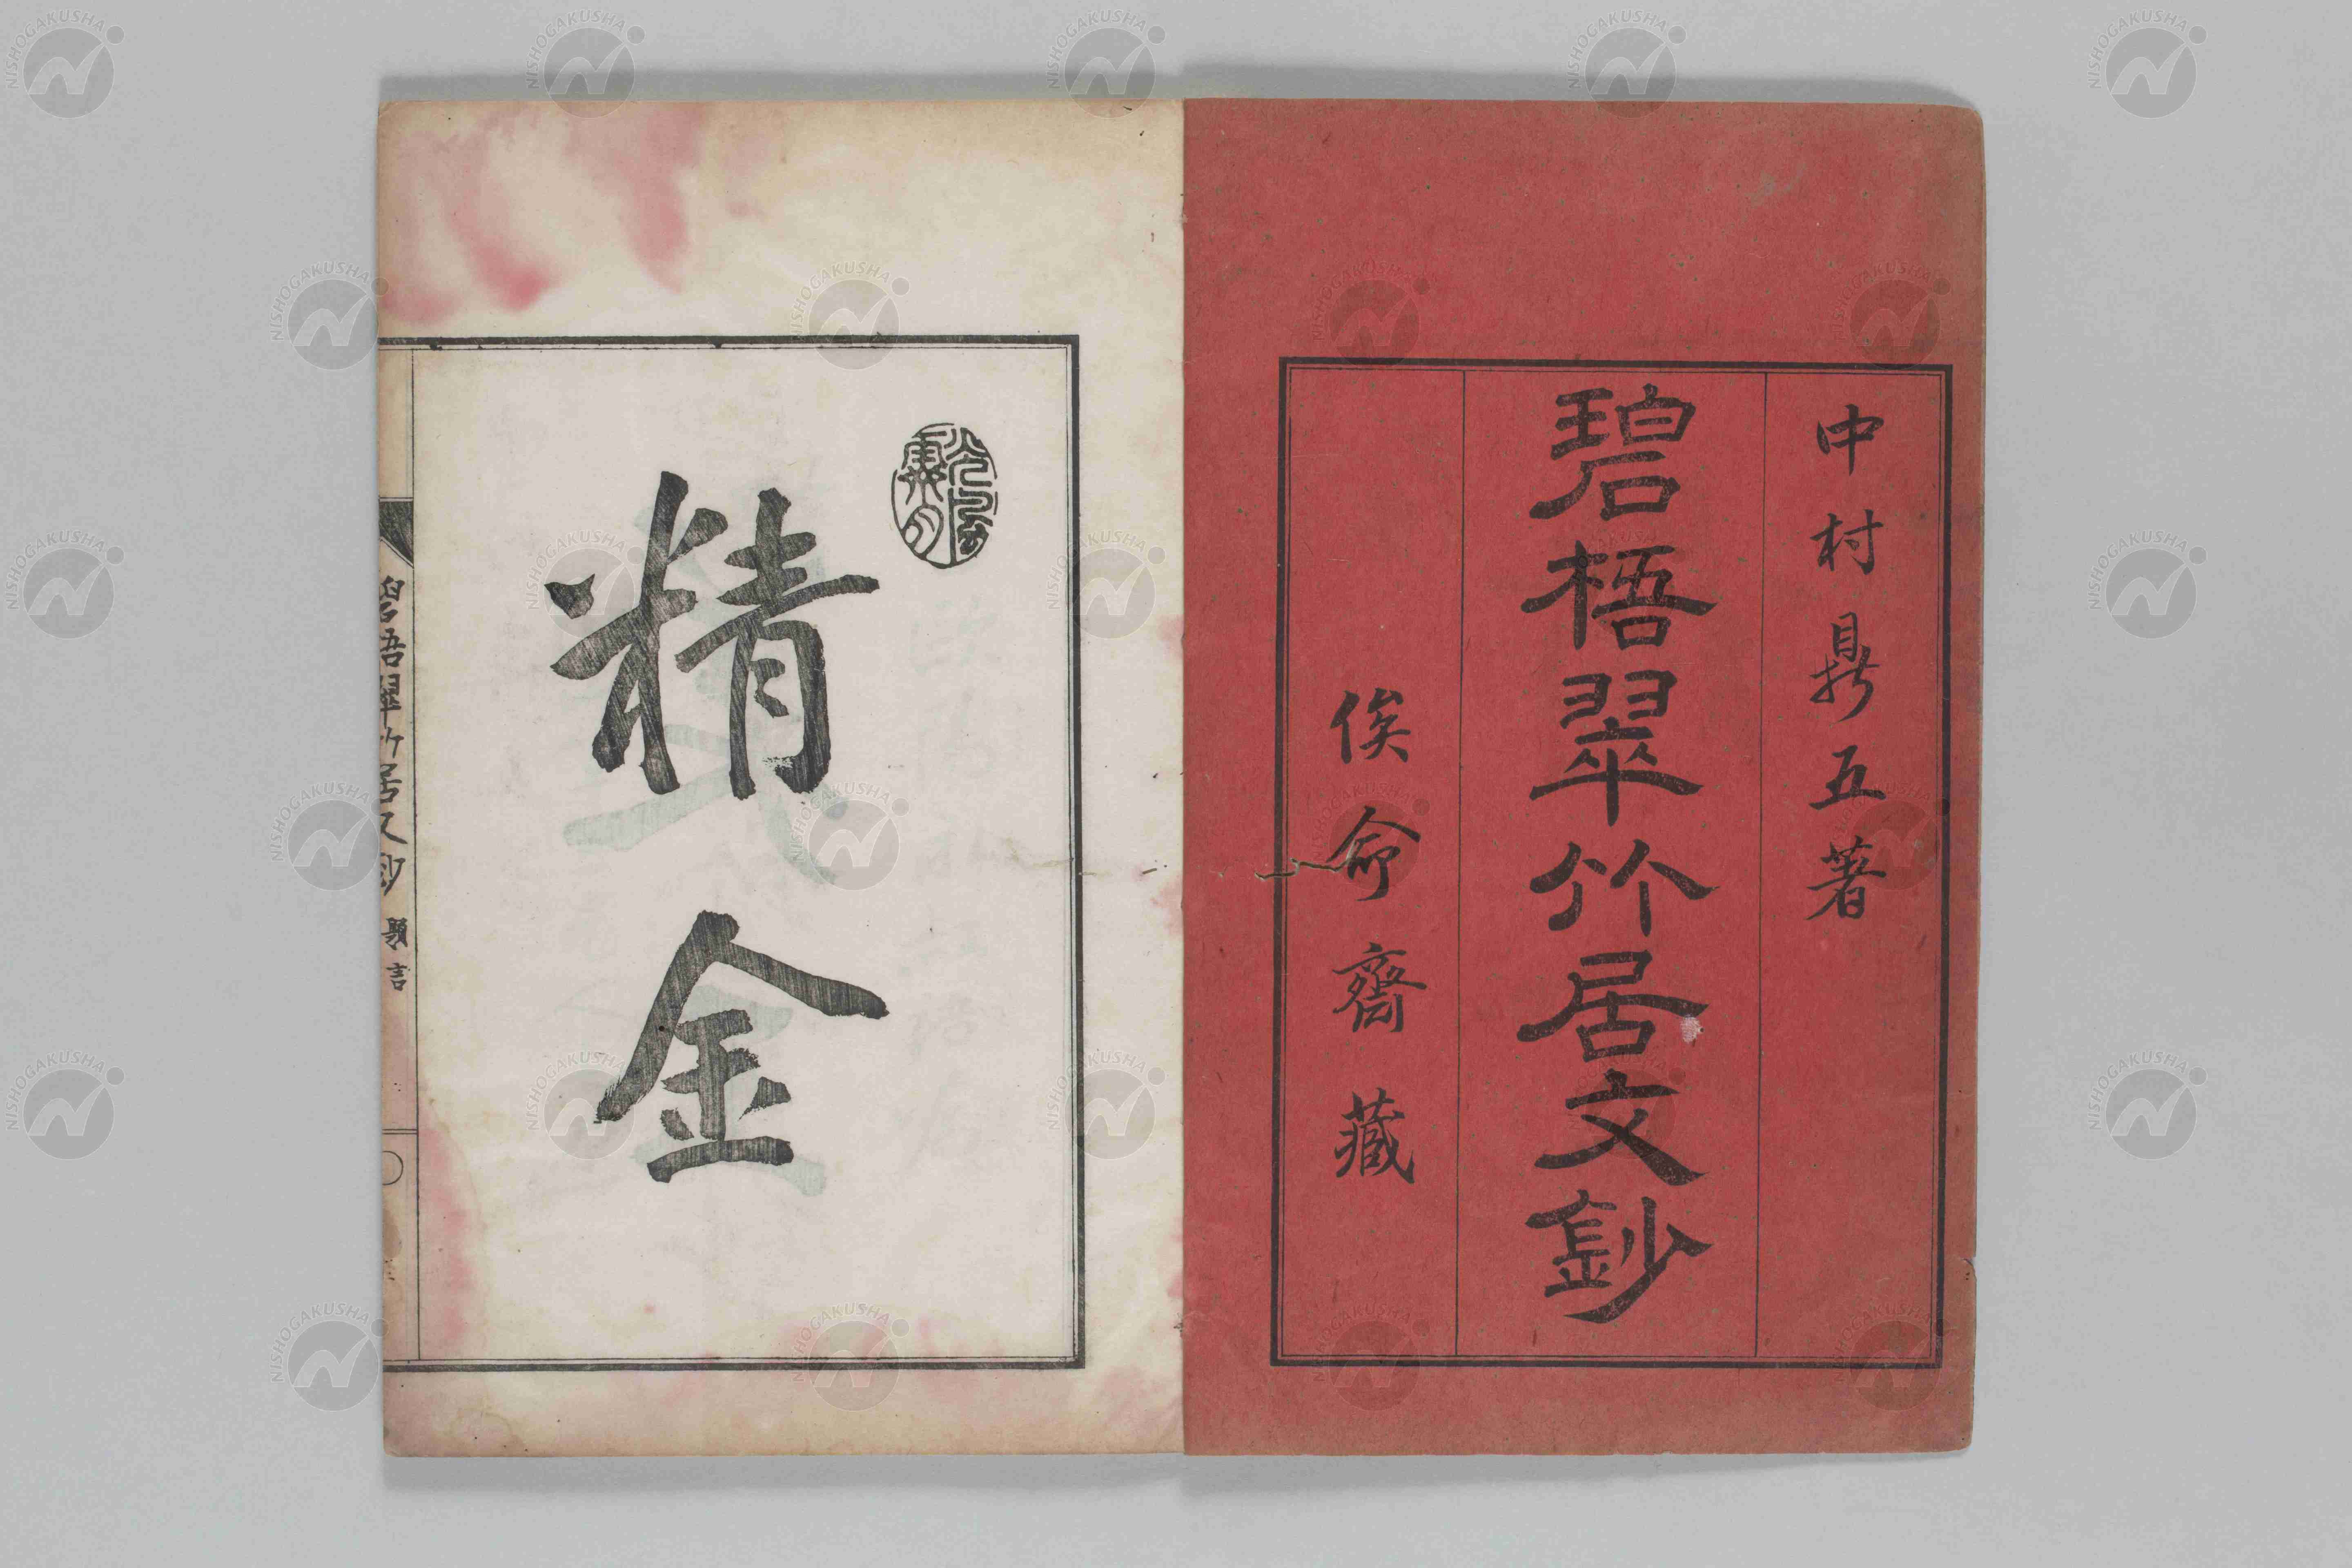 中村鼎五著
碧梧翠竹居文鈔
俟命齋藏
精金
碧梧翠竹居文鈔 題言
NISHOGAKUSHA